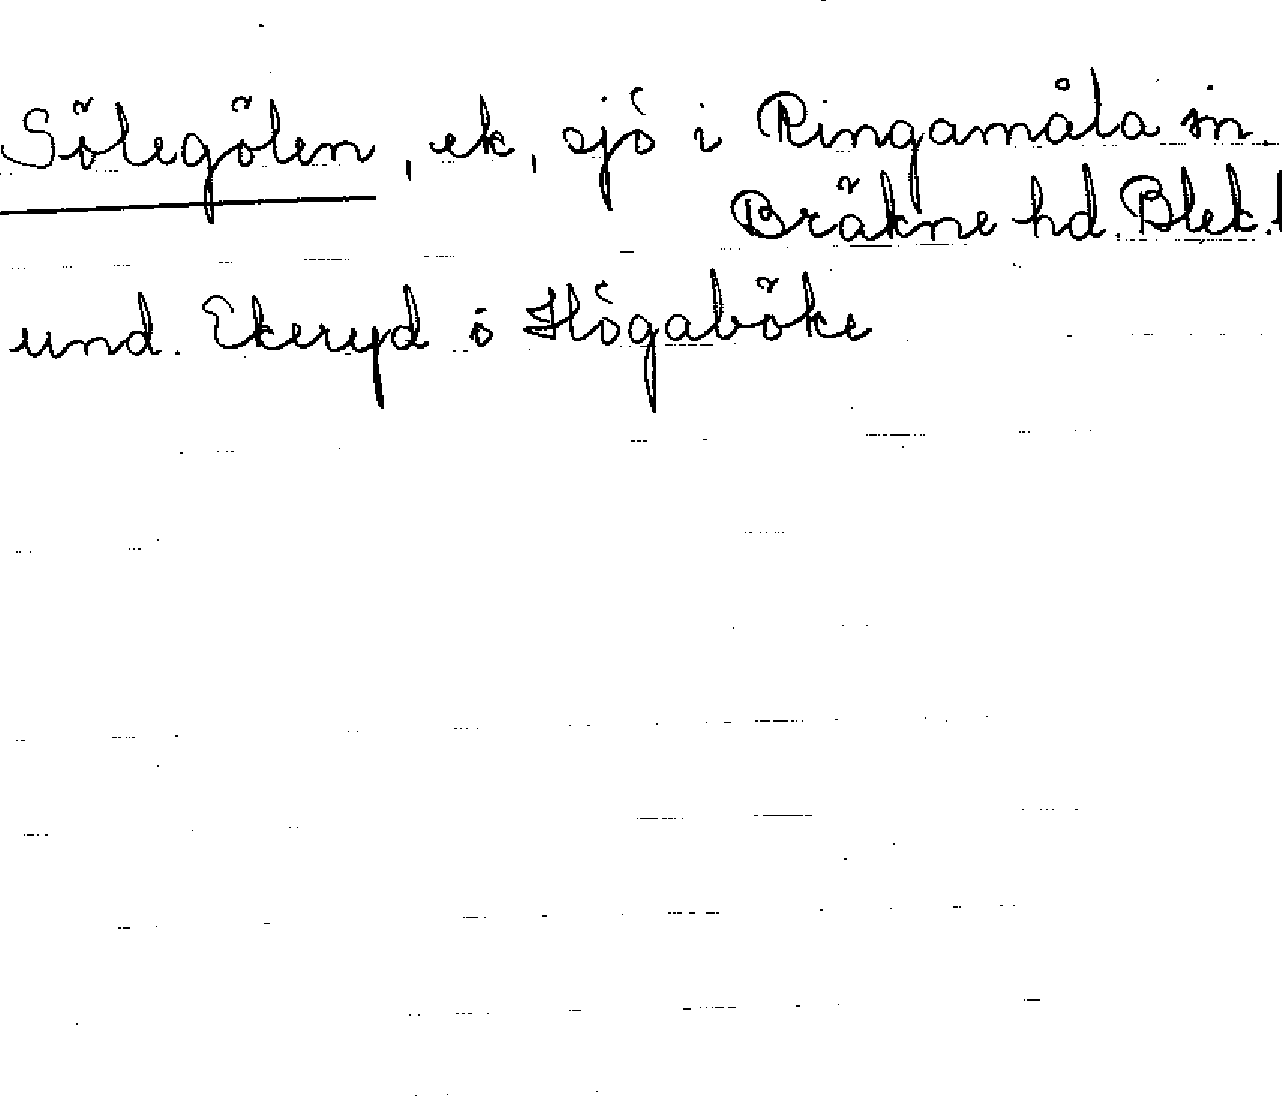 Sölegölen, ek, sjö i Ringamåla sn.
Bräkne hd. Blek. l
und. Ekeryd o Högaböke